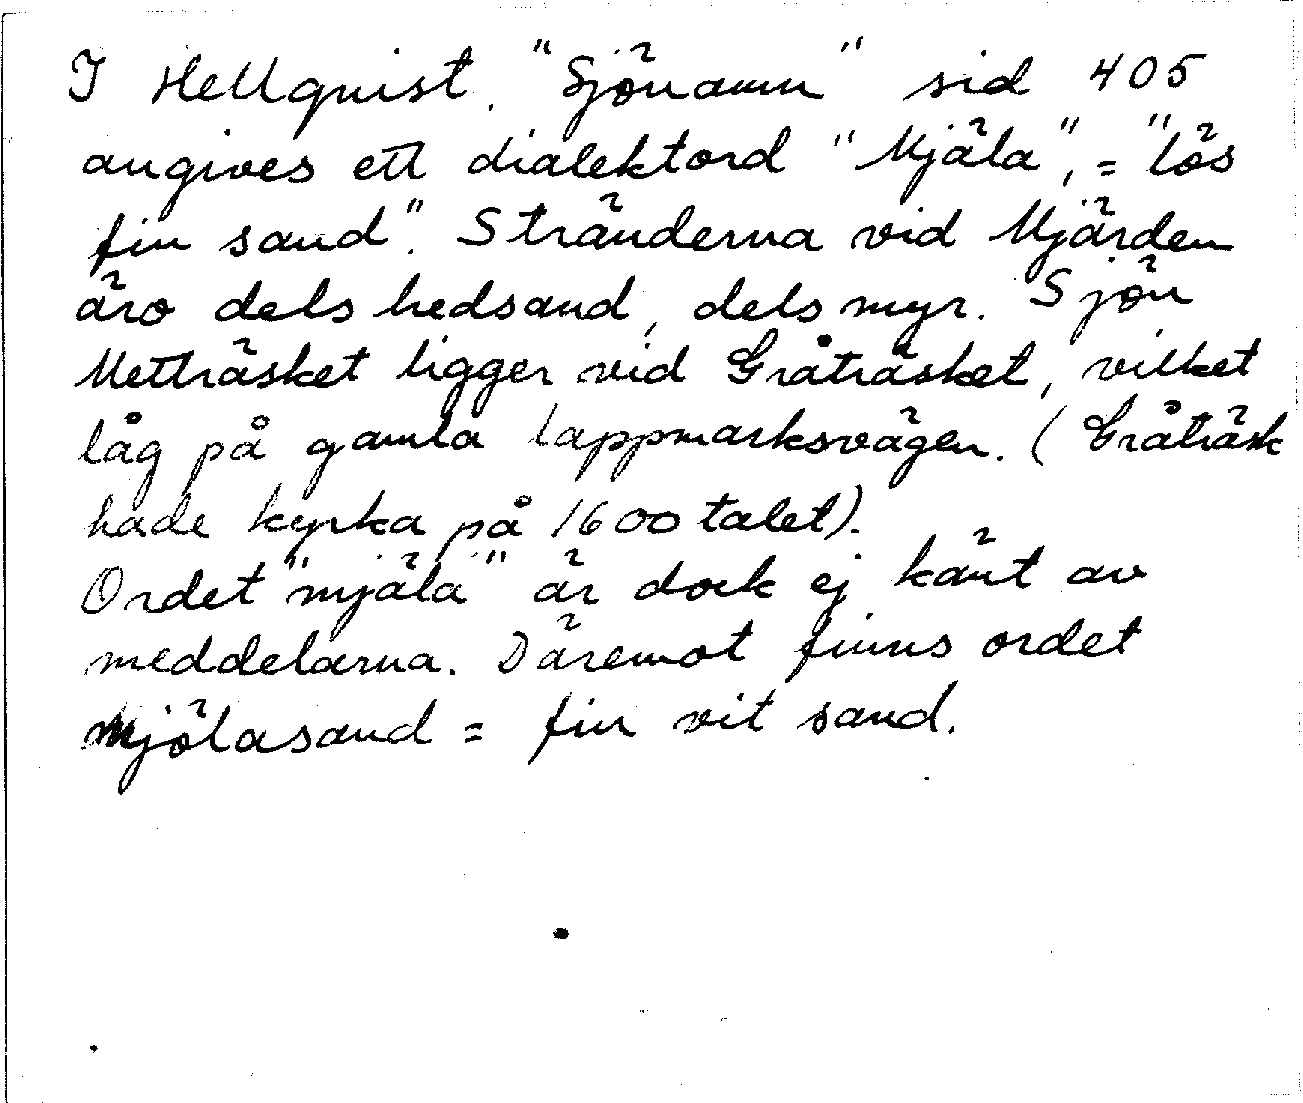 I Hellquist. "Sjönamn" sid 405
angives ett dialektord "Mjäla", = "lös
fin sand". Stränderna vid Mjärden
äro dels hedsand, dels myr. Sjön
Metträsket ligger vid Gråträsket, vilket
låg på gamla lappmarksvägen. (Gråträsk
hade kyrka på 1600 talet).
Ordet "mjäla" är dock ej känt av
meddelarna. Däremot finns ordet
Mjölasand = fin vit sand.